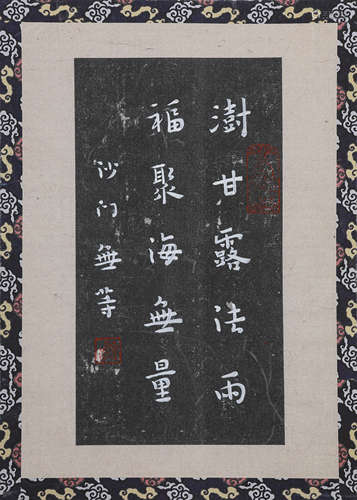 澍甘露法雨
福聚海無量
沙门無等